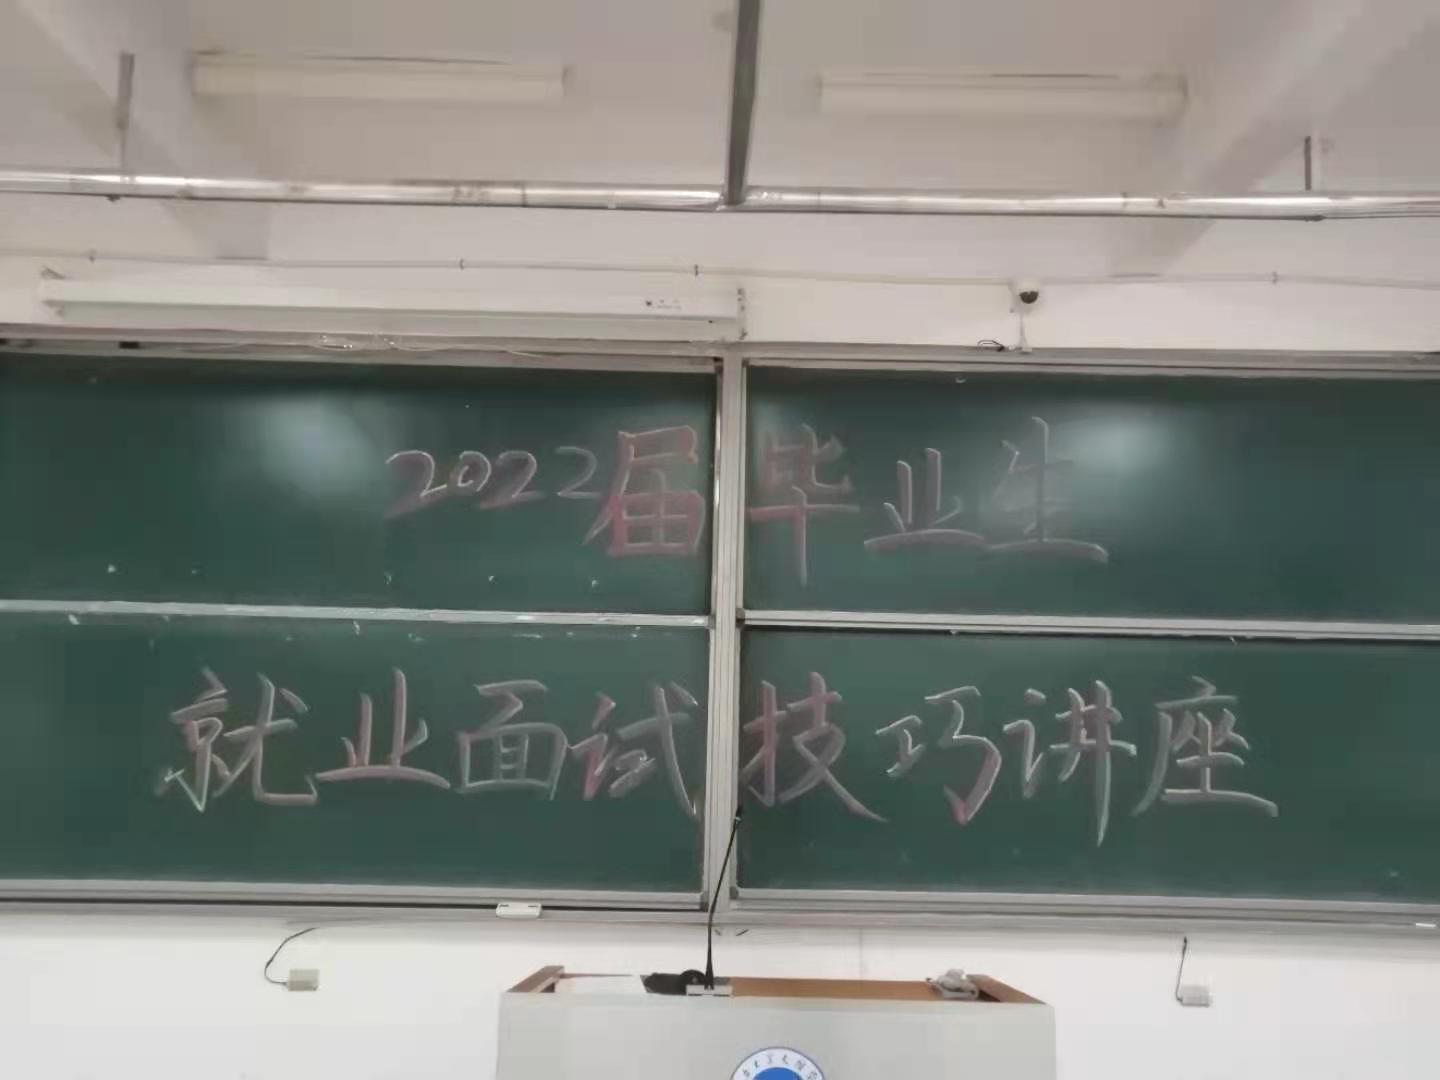 2022届毕业生
就业面试技巧讲座